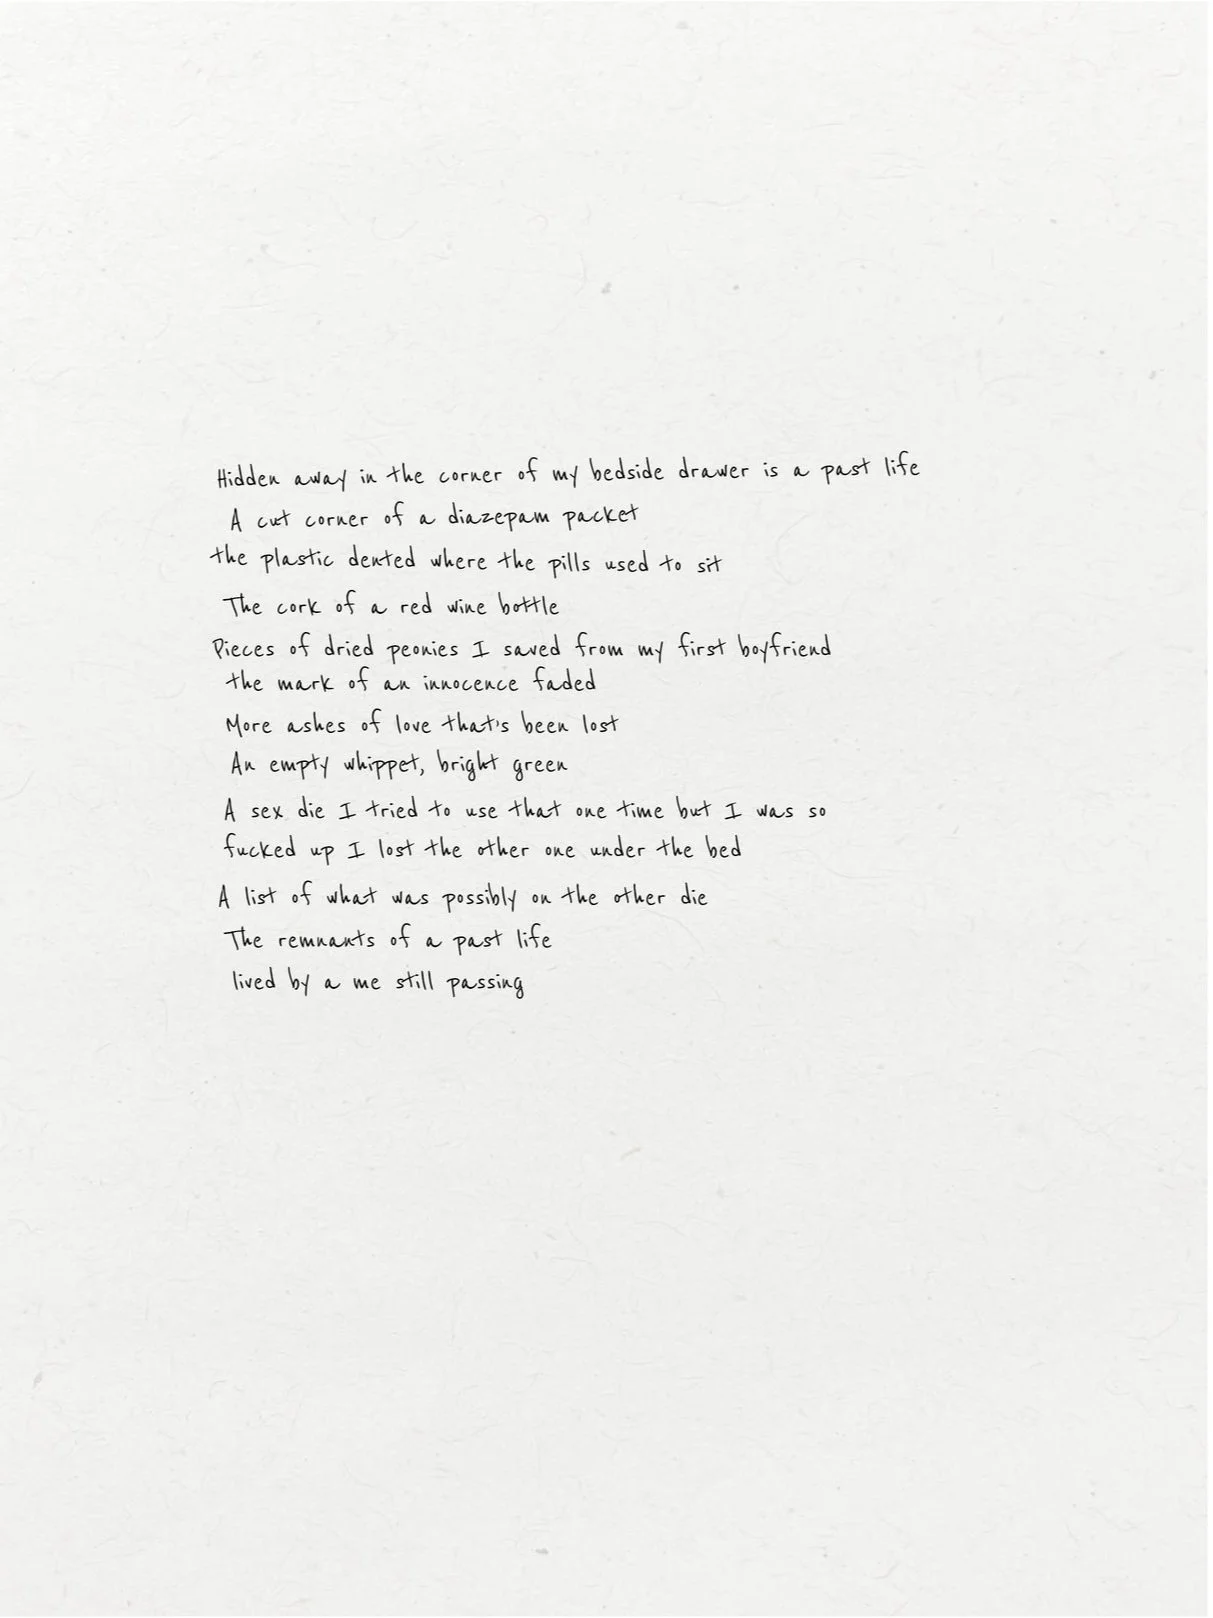 Hidden away in the corner of my bedside drawer is a past life
A cut corner of a diazepam packet
the plastic dented where the pills used to sit
The cork of a red wine bottle
Pieces of dried peonies I saved from my first boyfriend
the mark of an innocence faded
More ashes of love that's been lost
An empty whippet, bright green
A sex die I tried to use that one time but I was so
fucked up I lost the other one under the bed
A list of what was possibly on the other die
The remnants of a past life
lived by a me still passing